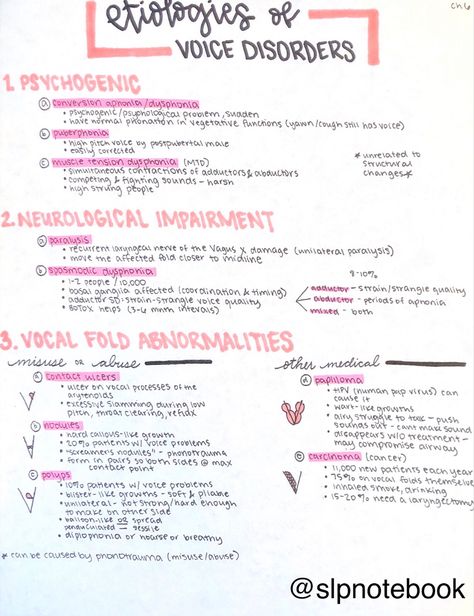 etiologies of
VOICE DISORDERS
Ch.6
1. PSYCHOGENIC
a conversion aphonia/dysphonia
• psychogenic/psychological problem, sudden
• have normal phonation in vegetative functions (yawn/cough still has voice)
b puberphonia
• high pitch voice by postpubertal male
• easily corrected
c muscle tension dysphonia (MTD)
• simultaneous contractions of adductors & abductors
• competing & fighting sounds - harsh
• high strung people
* unrelated to
structural
changes *
2. NEUROLOGICAL IMPAIRMENT
a paralysis
• recurrent laryngeal nerve of the vagus X damage (unilateral paralysis)
• move the affected fold closer to midline
b spasmodic dysphonia
• 1-2 people/10,000
• basal ganglia affected (coordination & timing)
• adductor SD: strain-strangle voice quality
• BOTOX helps (3-6 month intervals)
8-10%
adductor - strain/strangle quality
abductor - periods of aphonia
mixed - both
3. VOCAL FOLD ABNORMALITIES
misuse or abuse
a contact ulcers
• ulcer on vocal processes of the
arytenoids
• excessive slamming during low
pitch, throat clearing, reflux
b nodules
• hard callous-like growth
• 20% patients w/ voice problems
• "screamers nodules" - phonotrauma
• form in pairs so both sides @ max
contact point
c polyps
• 10% patients w/ voice problems
• blister-like growths - soft & pliable
• unilateral - not strong/hard enough
to make on other side
• balloon-like or spread
pedunculated — sessile
• diplophonia or hoarse or breathy
* can be caused by phonotrauma (misuse/abuse)
other medical
d papilloma
• HPV (human pap virus) can
cause it
• wart-like growths
• airy struggle to talk - push
sounds out - cant make sound
• disappears w/o treatment -
may compromise airway
e carcinoma (cancer)
• 11,000 new patients each year
• 75% on vocal folds themselves
• inhaled smoke, drinking
• 15-20% need a laryngectomy
@slpnotebook